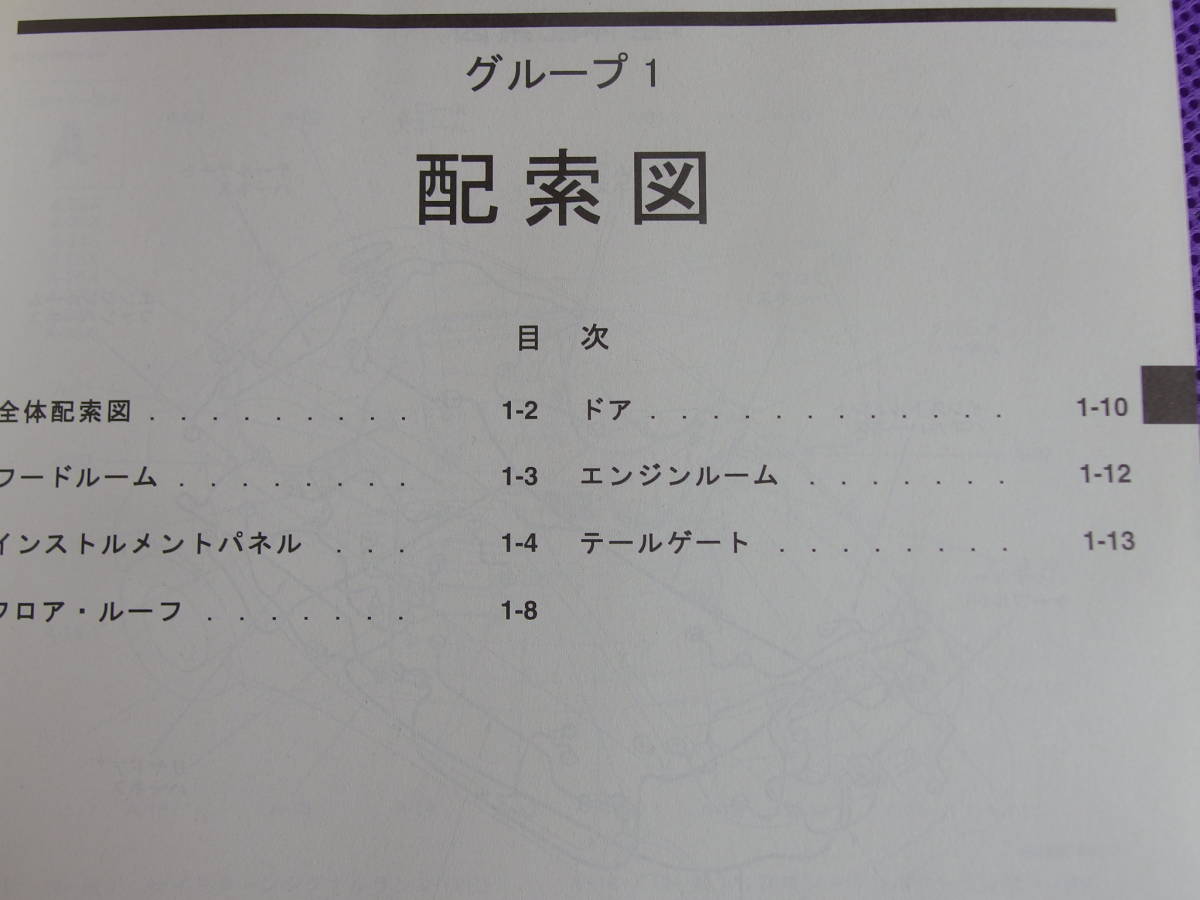 グループ 1
配索図
目 次
全体配索図 . . . . . . . . . 1-2
フードルーム . . . . . . . . 1-3
インストルメントパネル . . . 1-4
フロア・ルーフ . . . . . . . 1-8
ドア . . . . . . . . . . . . 1-10
エンジンルーム . . . . . . . 1-12
テールゲート . . . . . . . . 1-13